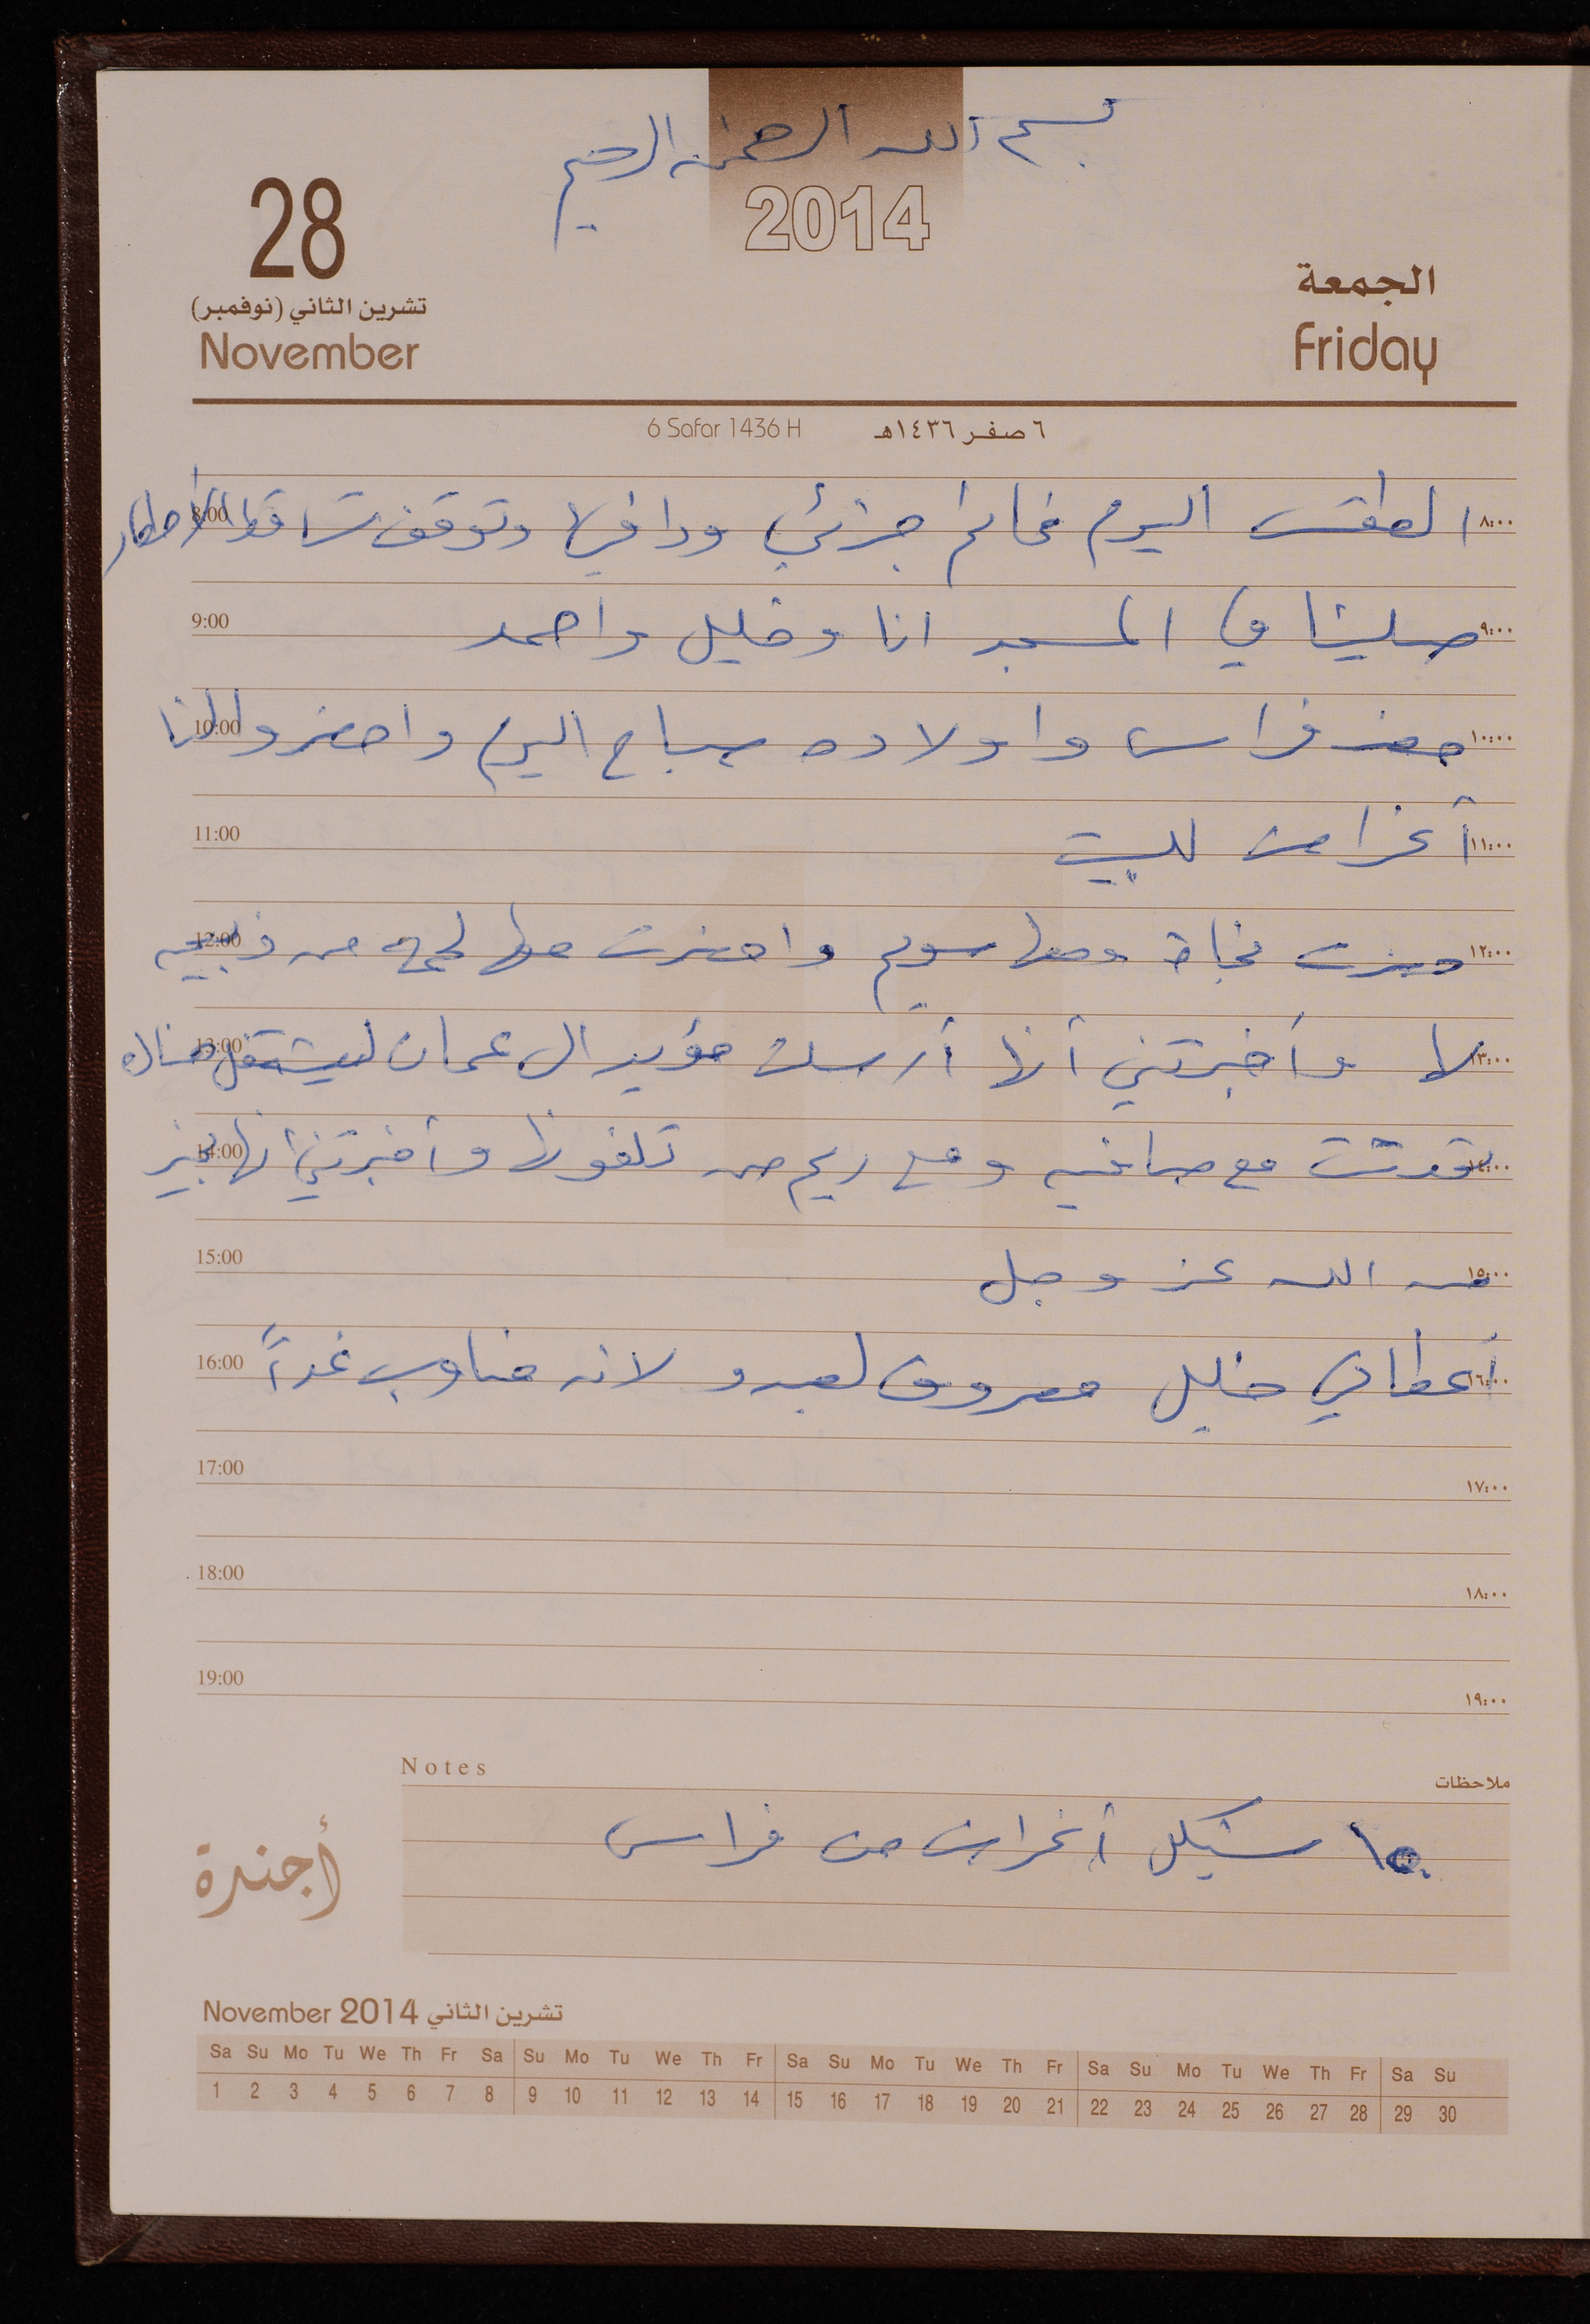 بسم الله الرحمن الرحيم
2014
28
تشرين الثاني (نوفمبر)
November
الجمعة
Friday
6 Safar 1436 H
٦ صفر ١٤٣٦هـ
٨:٠٠ الطقس اليوم غائم جزئي ودافئ وتوقف تساقط الأمطار 8:00
٩:٠٠ صلينا في المسجد انا وخليل واحمد 9:00
١٠:٠٠ حضر فراس واولاده صباح اليوم واحضروا لنا 10:00
١١:٠٠ أغراض للبيت 11:00
١٢:٠٠ حضرت نجاة ومعها واحضرت معها لحمه من ذبيحه 12:00
١٣:٠٠ لها وأخبرتني أنها أرسلت مؤيد الى عمان ليشتغل هناك 13:00
١٤:٠٠ تحدثت مع صافيه ومع ريم من تلفونها وأخبرتني انها بخير 14:00
١٥:٠٠ من الله عز وجل 15:00
١٦:٠٠ أعطاني خليل مصروف لعبدو لانه مناوب غداً 16:00
17:00 ١٧:٠٠
18:00 ١٨:٠٠
19:00 ١٩:٠٠
Notes
ملاحظات
١٥٠ شيكل أغراض من فراس
أجندة
November 2014 تشرين الثاني
Sa Su Mo Tu We Th Fr Sa Su Mo Tu We Th Fr Sa Su Mo Tu We Th Fr Sa Su Mo Tu We Th Fr Sa Su
1 2 3 4 5 6 7 8 9 10 11 12 13 14 15 16 17 18 19 20 21 22 23 24 25 26 27 28 29 30